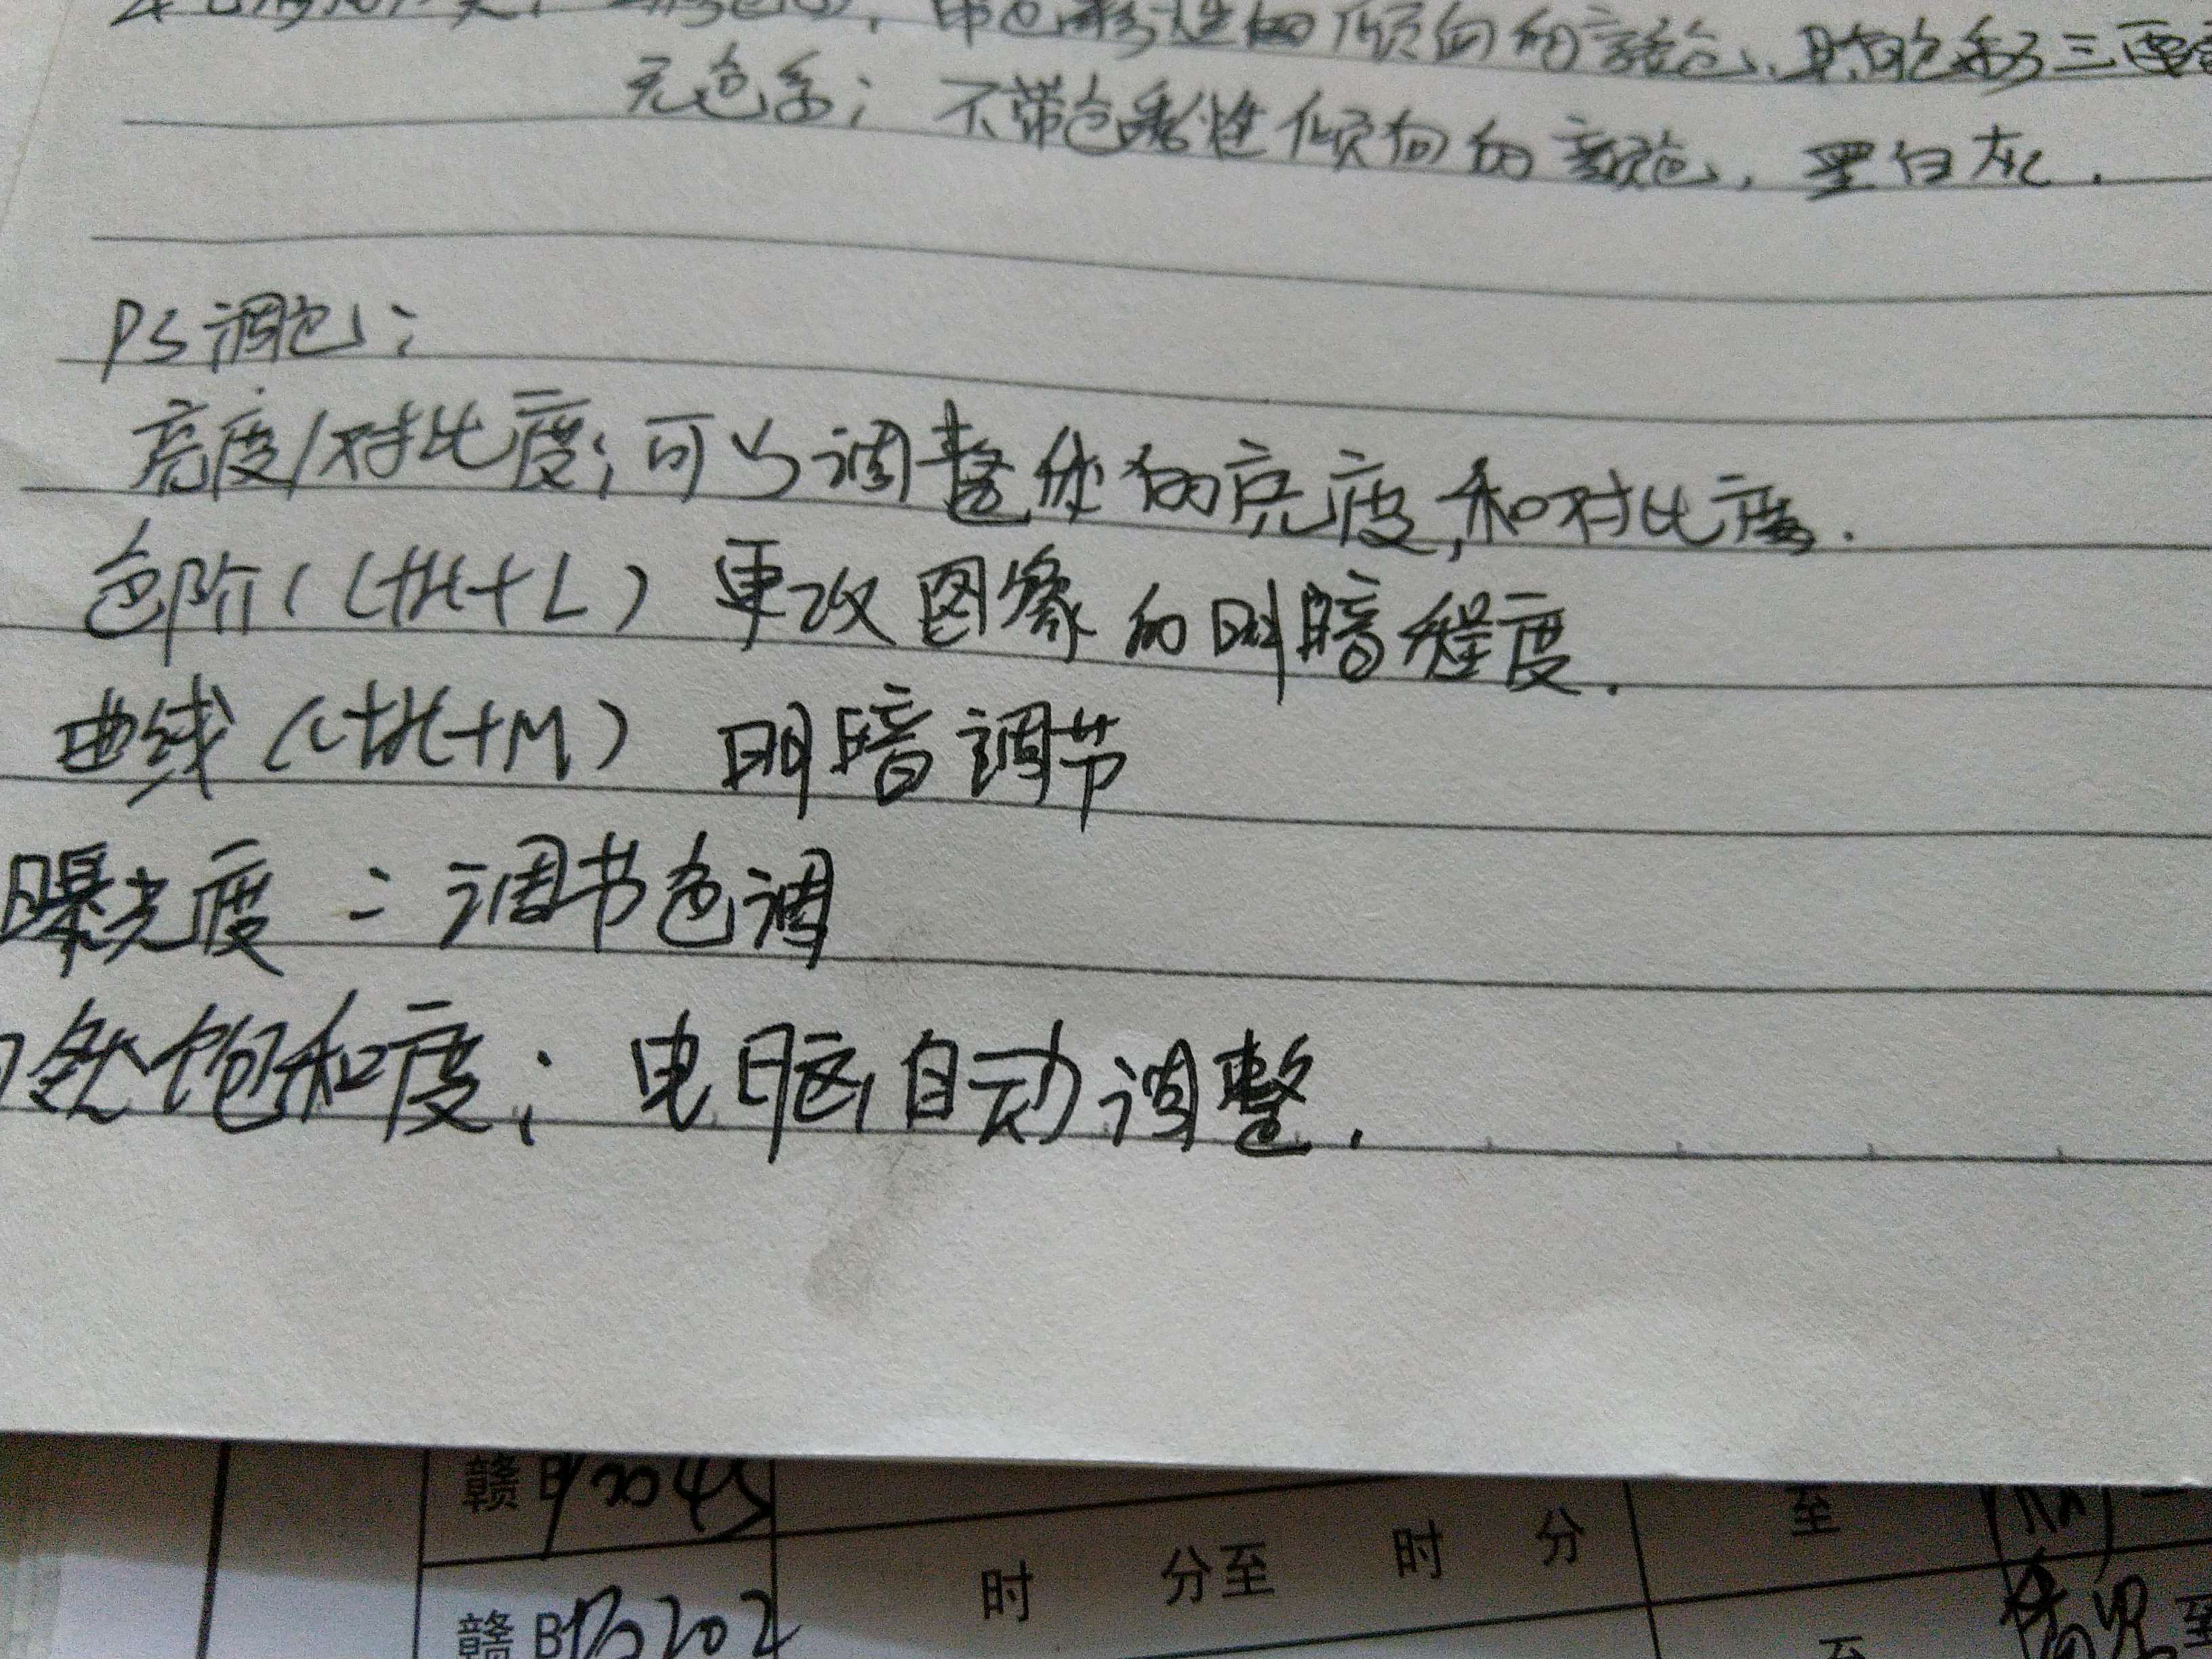 带色彩性的倾向的颜色、具有色彩三要
无色系；不带色彩性倾向的颜色，黑白灰.
PS调色；
亮度/对比度；可以调整体的亮度,和对比度.
色阶（Ctrl+L）更改图像的明暗程度.
曲线（Ctrl+M）明暗调节
曝光度：调节色调
自然饱和度；电脑自动调整.
赣B
时 分至 时 分 至
赣B 202 至 至